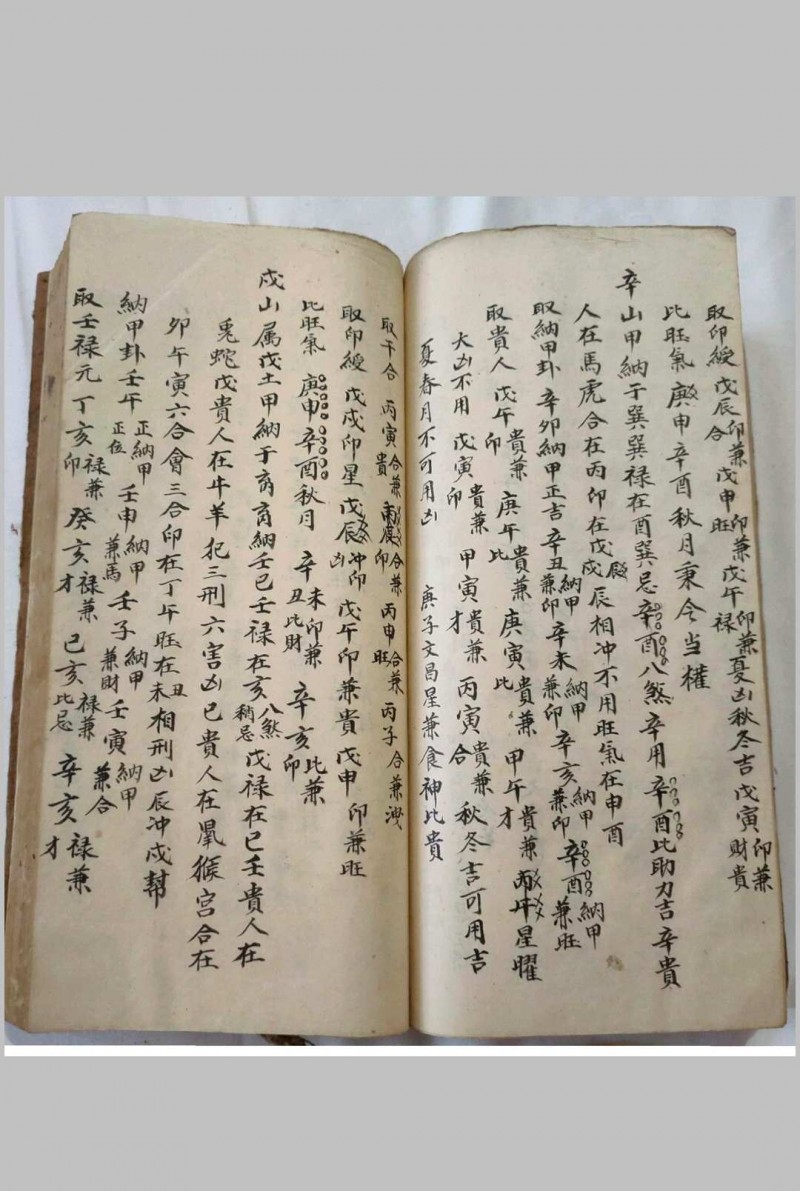 取印綬 戊辰印兼合 戊申印兼旺 戊午印兼祿 夏凶秋冬吉 戊寅印兼財貴
比旺氣 庚申辛酉秋月秉令當權
辛山甲納于巽巽祿在酉巽忌辛酉八煞辛用辛酉比助力吉辛貴
人在馬虎合在丙印在戊戌辰相冲不用旺氣在申酉
取納甲卦 辛卯納甲正吉 辛丑納甲兼印 辛未納甲兼印 辛亥納甲兼印 辛酉納甲兼旺
取貴人 戊午貴兼印 庚午貴兼比 庚寅貴兼比 甲午貴兼才 丙午星曜
大凶不用 戊寅貴兼印 甲寅貴兼才 丙寅貴兼合 秋冬吉可用吉
夏春月不可用凶 庚子文昌星兼食神比貴
取干合 丙寅合兼貴 丙辰合兼印 丙申合兼旺 丙子合兼洩
取印綬 戊戌印星 戊辰冲印凶 戊午印兼貴 戊申印兼旺
比旺氣 庚申辛酉秋月 辛丑 未印兼比財 辛亥比兼印
戌山属戊土甲納于离离納壬已壬祿在亥八煞稍忌戊祿在巳壬貴人在
兎蛇戊貴人在牛羊犯三刑六害凶已貴人在鼠猴宫合在
卯午寅六合會三合印在丁午旺在未丑相刑凶辰冲戌幇
納甲卦壬午正納甲正位 壬申納甲兼馬 壬子納甲兼財 壬寅納甲兼合
取壬禄元 丁亥禄兼印 癸亥禄兼才 已亥禄兼比忌 辛亥禄兼才